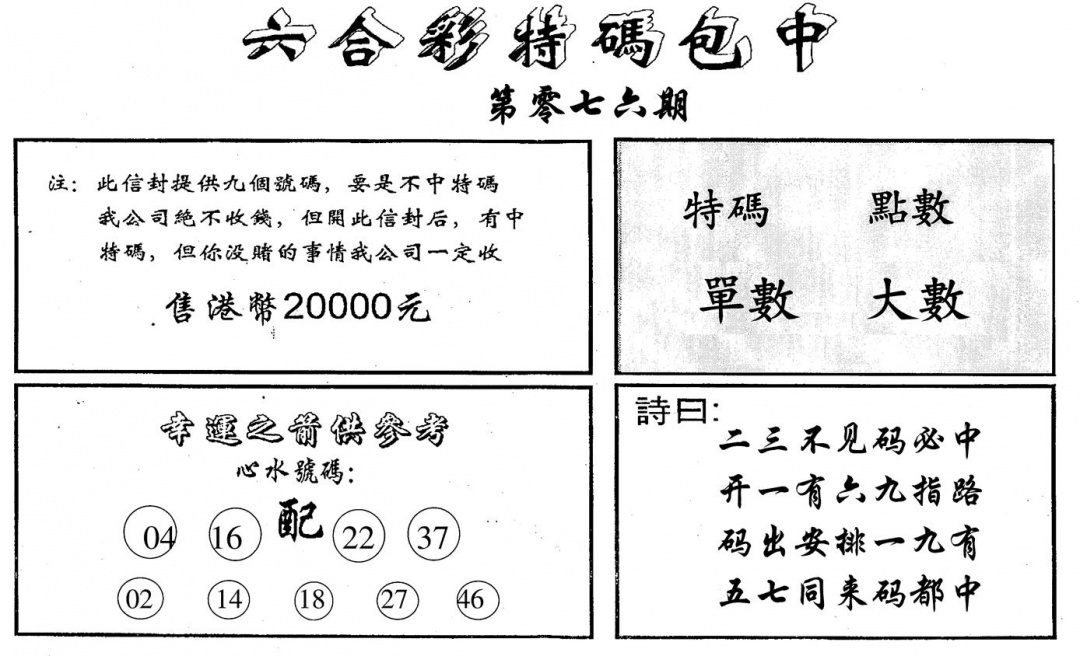 六合彩特碼包中
第零七六期
注：此信封提供九個號碼，要是不中特碼
我公司絕不收錢，但開此信封后，有中
特碼，但你没賭的事情我公司一定收
售港幣20000元
特碼 點數
單數 大數
幸運之箭供參考
心水號碼：
04 16 配 22 37
02 14 18 27 46
詩曰：
二三不见码必中
开一有六九指路
码出安排一九有
五七同来码都中